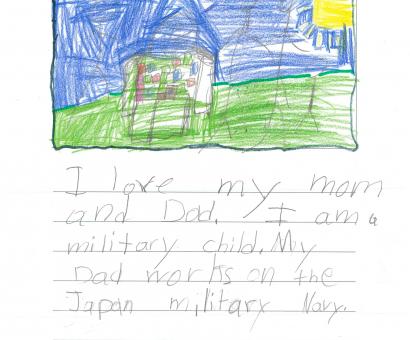 I love my mom
and Dad. I am a
military child. My
Dad works on the
Japan military Navy.